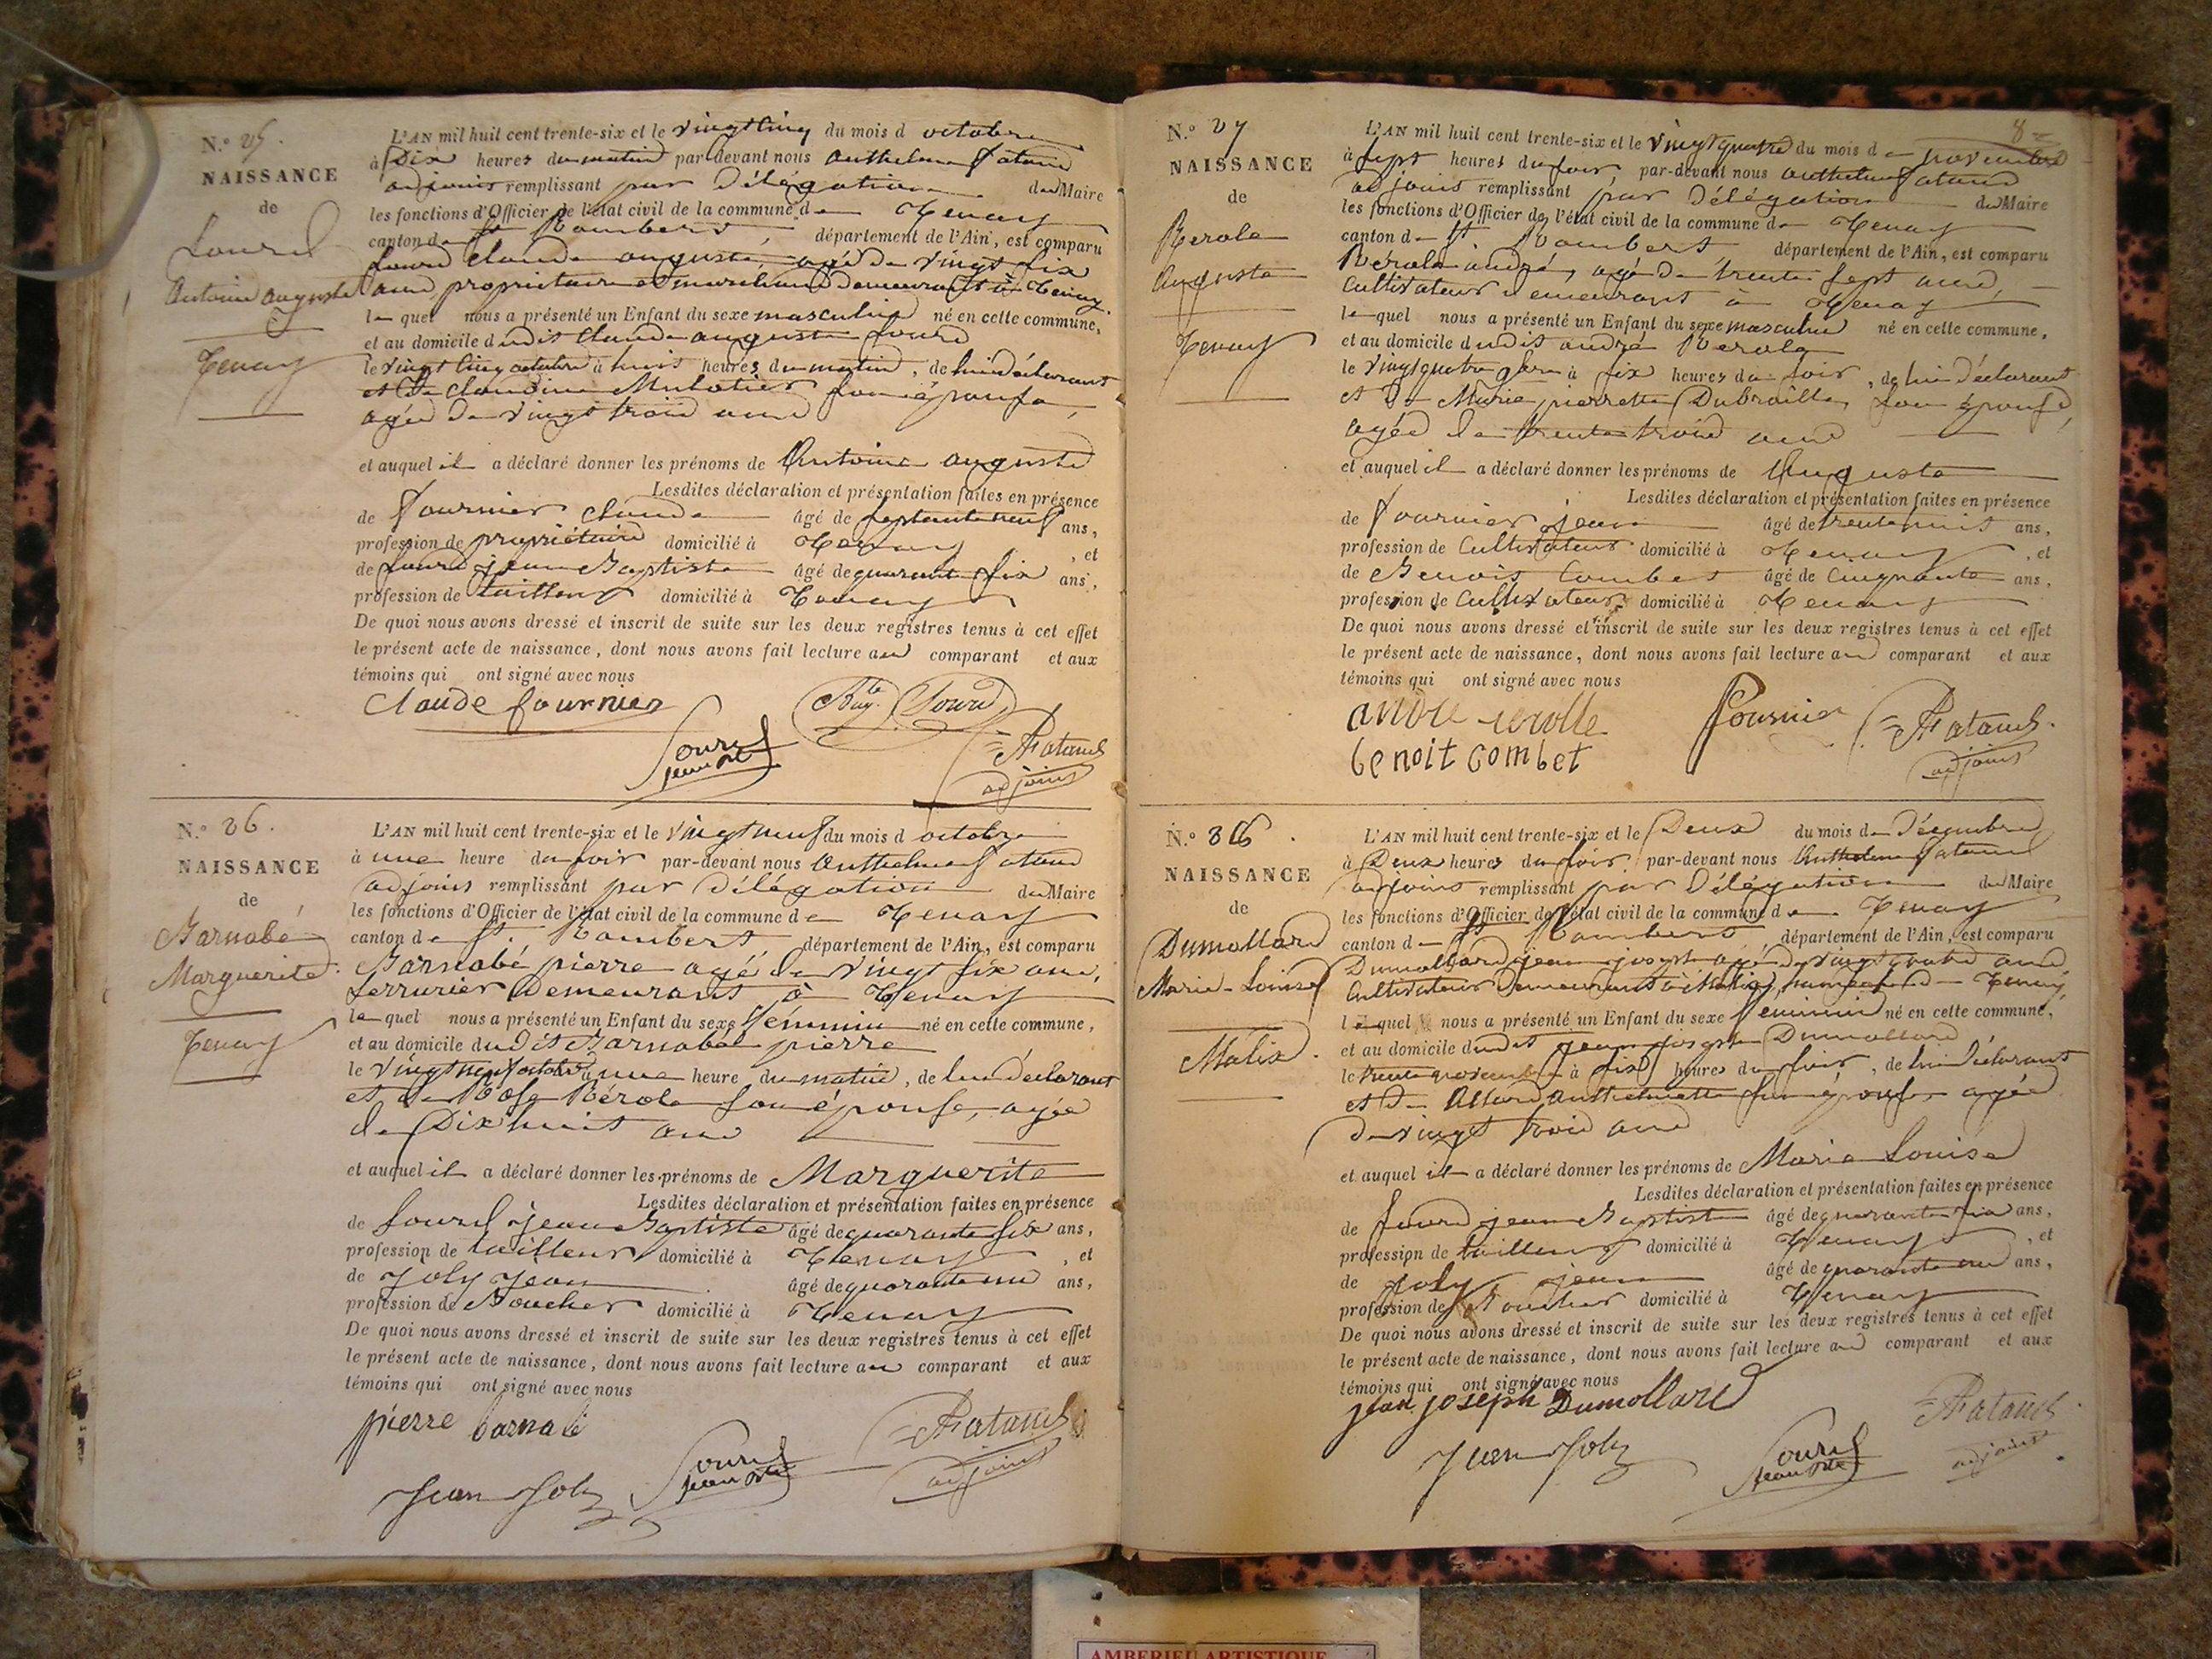 N.º 25.
NAISSANCE
de
Antoine auguste
Tenay
L'AN mil huit cent trente-six et le vingt cinq du mois d octobre
à Dix heures du matin par-devant nous anthelme fatand
adjoint remplissant par Délégation du Maire
les fonctions d'Officier de l'état civil de la commune de Tenay
canton de St Rambert, département de l'Ain, est comparu
claude auguste, agé de vingt six
ans, propriétaire et marchand demeurant à Tenay.
lequel nous a présenté un Enfant du sexe masculin né en cette commune,
et au domicile dudit claude auguste
le vingt cinq octobre à huit heures du matin, de lui déclarant
et De claudine Mulatier son épouse,
agée De vingt trois ans
et auquel il a déclaré donner les prénoms de Antoine auguste
Lesdites déclaration et présentation faites en présence
de fournier claude âgé de septante neuf ans,
profession de propriétaire domicilié à Tenay, et
de jean Baptiste âgé de quarante six ans,
profession de tailleur domicilié à Tenay
De quoi nous avons dressé et inscrit de suite sur les deux registres tenus à cet effet
le présent acte de naissance, dont nous avons fait lecture au comparant et aux
témoins qui ont signé avec nous
claude fournier
adjoint
N.º 26.
NAISSANCE
de
Barnabé
Marguerite.
Tenay
L'AN mil huit cent trente-six et le vingt neuf du mois d octobre
à une heure du soir par-devant nous Anthelme fatand
adjoint remplissant par Délégation du Maire
les fonctions d'Officier de l'état civil de la commune de Tenay
canton de St. Rambert département de l'Ain, est comparu
Barnabé pierre agé de vingt six ans,
serrurier Demeurant à Tenay
lequel nous a présenté un Enfant du sexe féminin né en cette commune,
et au domicile dudit Barnabé pierre
le vingt neuf octobre à une heure du matin, de lui déclarant
et de Rose Bérola son épouse, agée
de Dix huit ans
et auquel il a déclaré donner les prénoms de Marguerite
Lesdites déclaration et présentation faites en présence
de jean Baptiste âgé de quarante six ans,
profession de tailleur domicilié à Tenay, et
de Joly Jean âgé de quarante un ans,
profession de Boucher domicilié à Tenay
De quoi nous avons dressé et inscrit de suite sur les deux registres tenus à cet effet
le présent acte de naissance, dont nous avons fait lecture au comparant et aux
témoins qui ont signé avec nous
pierre barnabé
Jean Joly
adjoint
8
N.º 27
NAISSANCE
de
Berola
Auguste
Tenay
L'AN mil huit cent trente-six et le vingt quatre du mois de novembre
à sept heures du soir par-devant nous anthelme fatand
adjoint remplissant par Délégation du Maire
les fonctions d'Officier de l'état civil de la commune de Tenay
canton de St. Rambert département de l'Ain, est comparu
Bérola andré, agé de trente sept ans,
cultivateur demeurant à Tenay
lequel nous a présenté un Enfant du sexe masculin né en cette commune,
et au domicile dudit andré Berola
le vingt quatre 9bre à six heures du soir, de lui Déclarant
et De Marie pierrette Dubraille, son épouse,
agée de trente trois ans
et auquel il a déclaré donner les prénoms de Auguste
Lesdites déclaration et présentation faites en présence
de fournier jean âgé de trente huit ans,
profession de Cultivateur domicilié à Tenay, et
de Benoit Combet âgé de Cinquante ans,
profession de Cultivateur domicilié à Tenay
De quoi nous avons dressé et inscrit de suite sur les deux registres tenus à cet effet
le présent acte de naissance, dont nous avons fait lecture au comparant et aux
témoins qui ont signé avec nous
andre fournier
benoit combet
adjoint
N.º
NAISSANCE
de
Dumollard
Marie-Louise
Malix.
L'AN mil huit cent trente-six et le Deux du mois de Décembre
à Deux heures du soir par-devant nous Anthelme fatand
adjoint remplissant par Délégation du Maire
les fonctions d'Officier de l'état civil de la commune de Tenay
canton de St Rambert, département de l'Ain, est comparu
Dumollard jean joseph agé de vingt quatre ans
Cultivateur Demeurant à Malix, hameau de Tenay,
lequel nous a présenté un Enfant du sexe féminin né en cette commune,
et au domicile dudit jean joseph Dumollard
le trente novembre à six heures du soir, de lui Déclarant
et De Allard Anthelmette son épouse, agée
De vingt trois ans
et auquel il a déclaré donner les prénoms de Marie Louise
Lesdites déclaration et présentation faites en présence
de jean Baptiste âgé de quarante six ans,
profession de tailleur domicilié à Tenay, et
de Joly jean âgé de quarante un ans,
profession de Boucher domicilié à Tenay
De quoi nous avons dressé et inscrit de suite sur les deux registres tenus à cet effet
le présent acte de naissance, dont nous avons fait lecture au comparant et aux
témoins qui ont signé avec nous
jean joseph Dumollard
Jean Joly
adjoint
AMBERIEU ARTISTIQUE